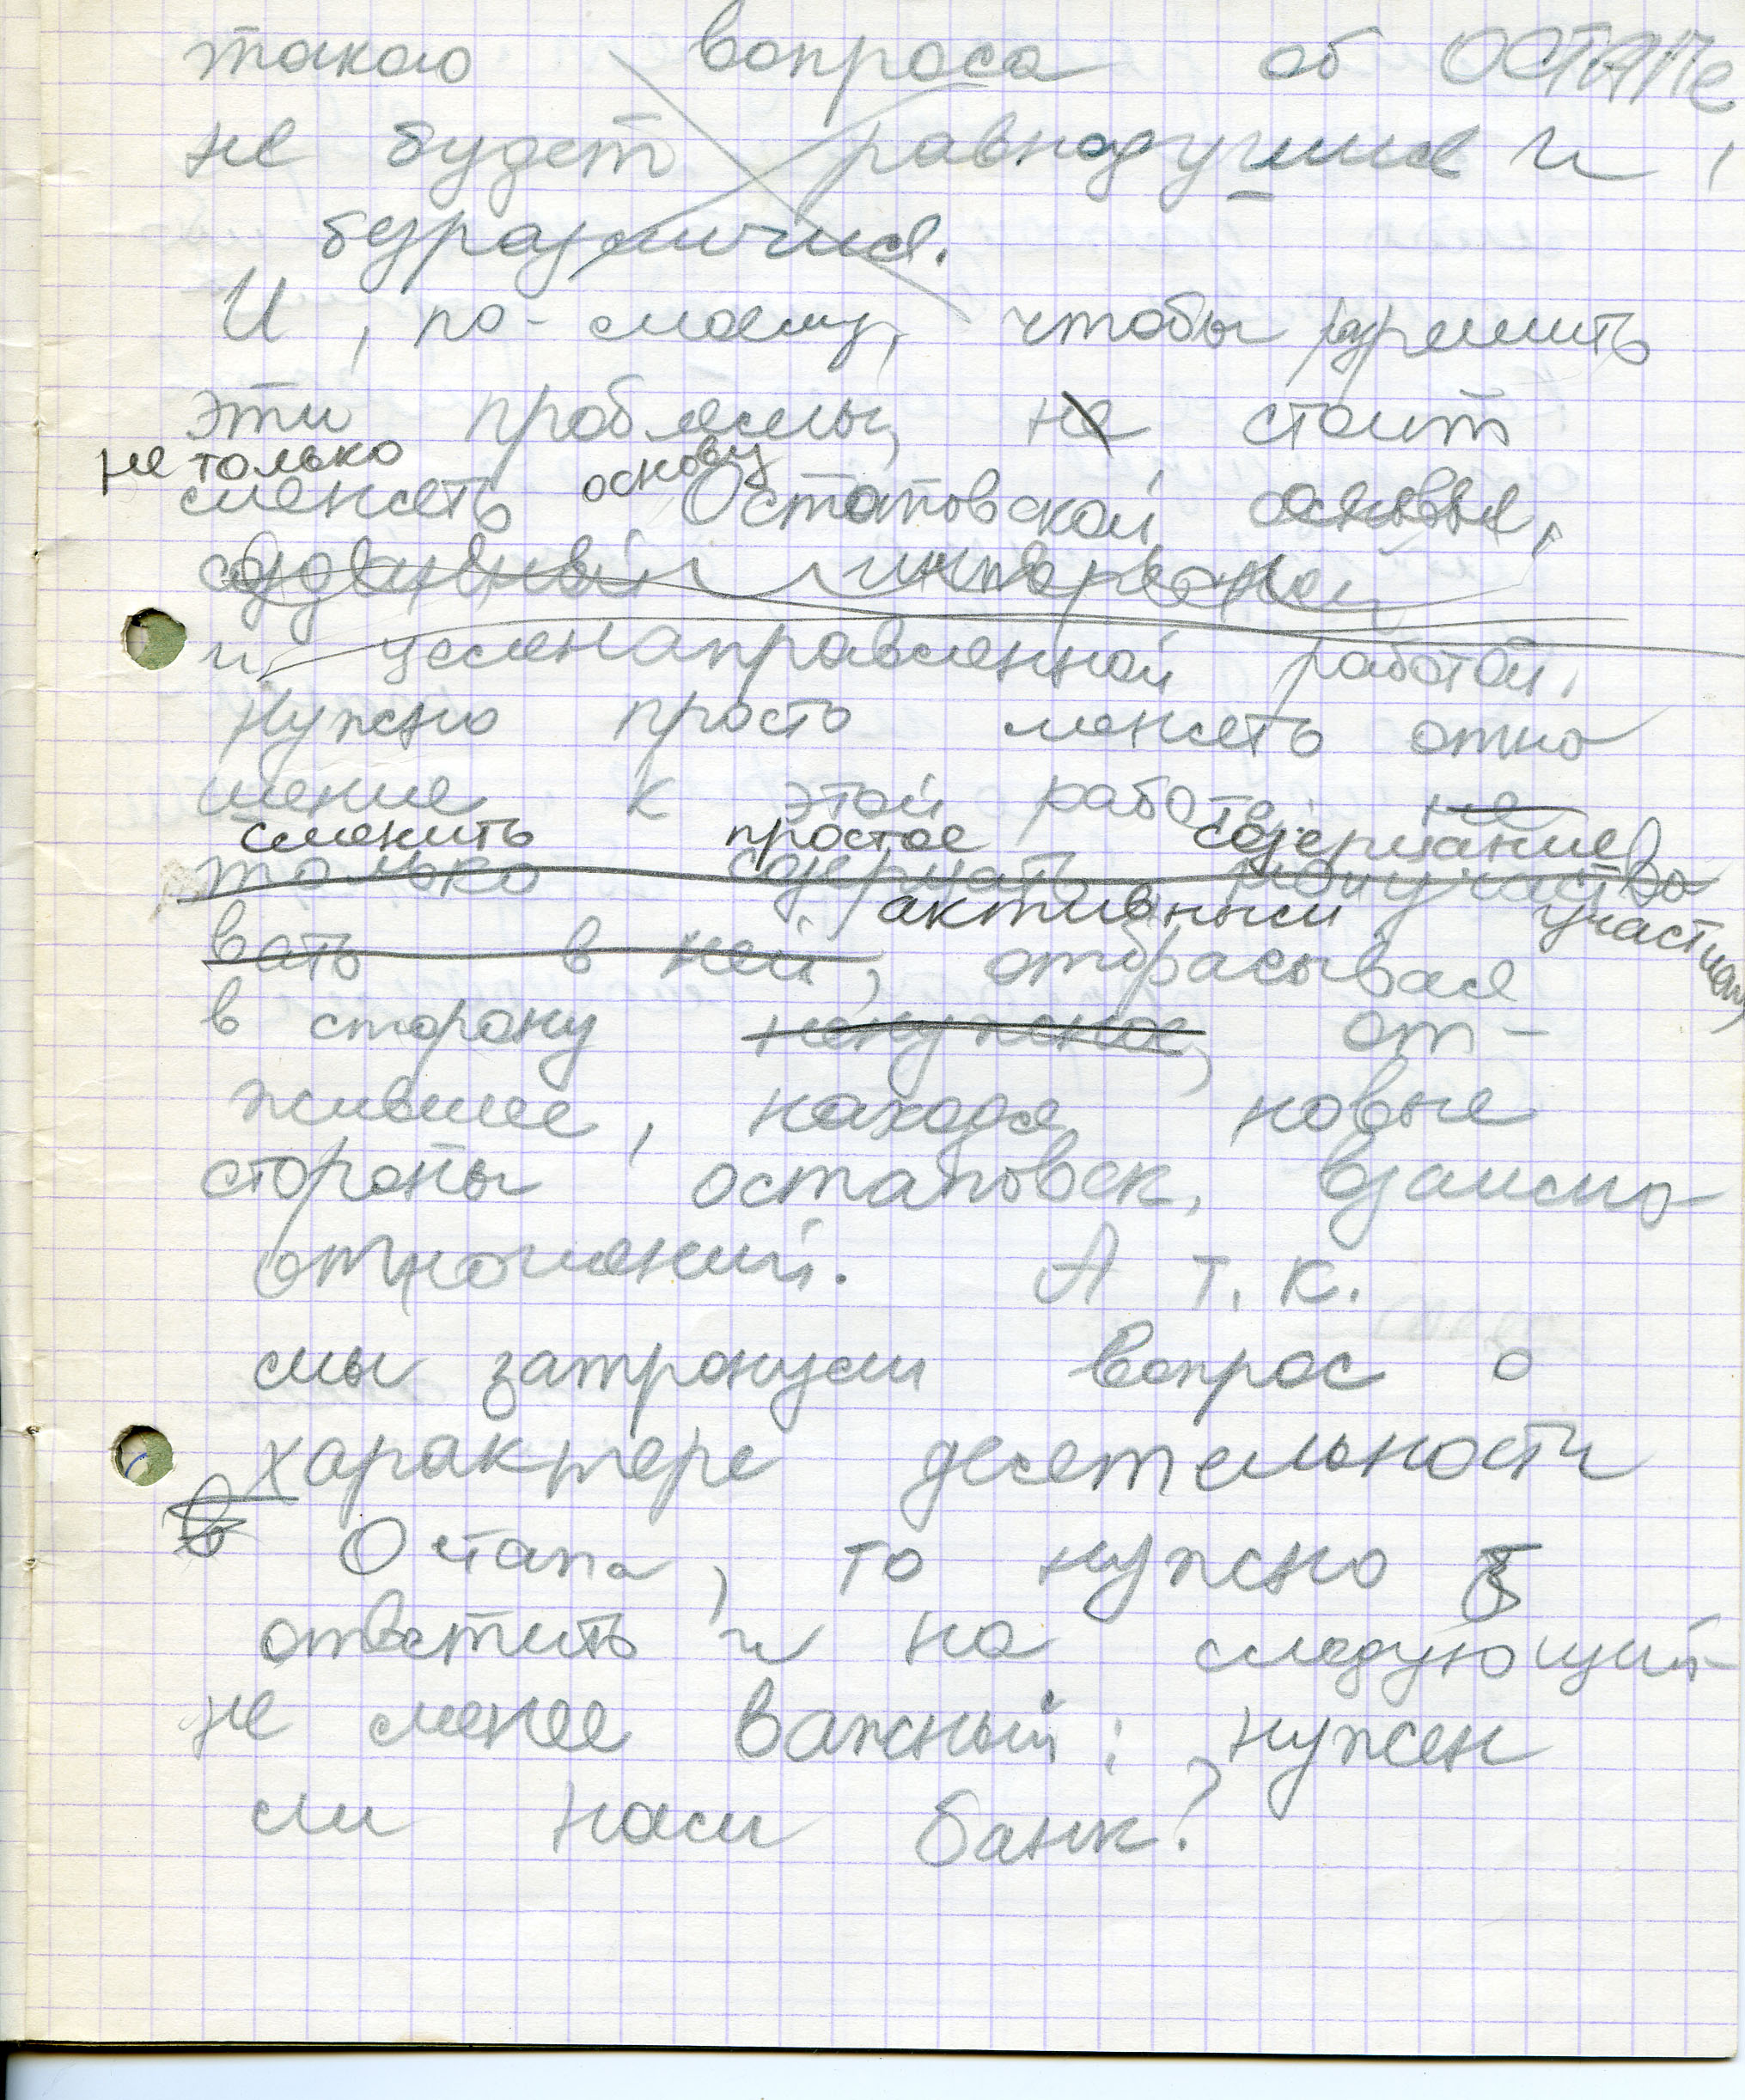 такого вопроса об ОСТАПе
не будет равнодушия и
безразличия.
И, по-моему, чтобы разрешить
эти проблемы, не стоит
не только основу
сменять Остаповской основы,
созданный интересной
и целенаправленной работой,
нужно просто менять отно
шение к этой работе, не
сменить простое созерцание
только созерцать, но и участво
активным участием,
вать в ней, отбрасывая
в сторону ненужное, от-
жившее, находя новые
стороны остаповск. взаимо
отношений. А т.к.
мы затронули вопрос о
характере деятельности
Остапа, то нужно
ответить и на следующий
не менее важный: нужен
ли нам банк?